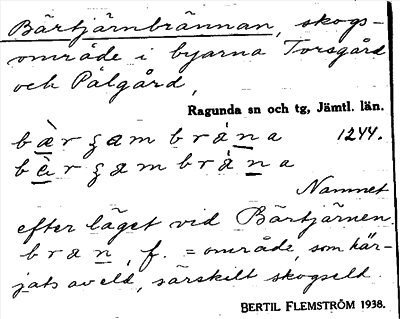 Bärtjärnbrännan, skogs-
område i byarna Torsgård
och Pålgård,
Ragunda sn och tg, Jämtl. län.
bæ̀rʒambrána 1244.
bæ̀rʒambrána
Namnet
efter läget vid Bärtjärnen.
bran, f. = område, som här-
jats av eld, särskilt skogseld.
BERTIL FLEMSTRÖM 1938.